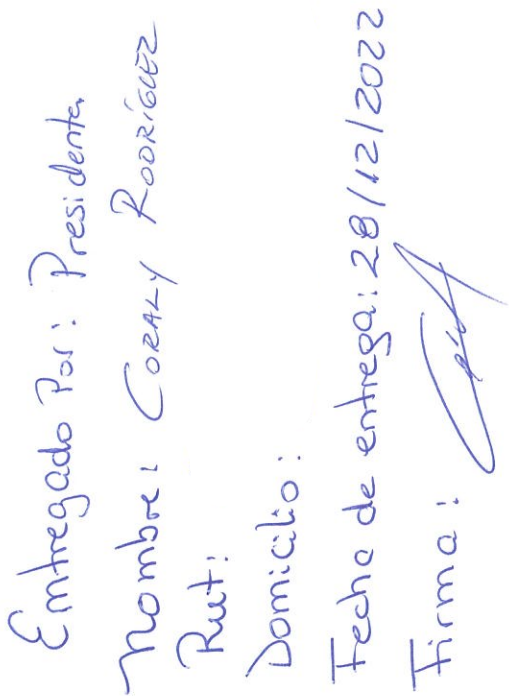 Entregado Por: Presidenta
Nombre: CORALY RODRÍGUEZ
Rut:
Domicilio:
Fecha de entrega: 28/12/2022
Firma: